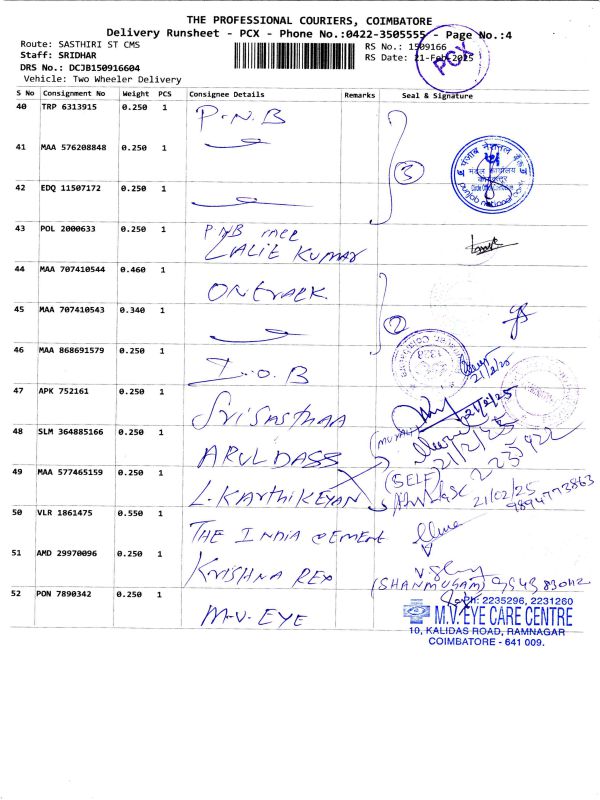 THE PROFESSIONAL COURIERS, COIMBATORE
Delivery Runsheet - PCX - Phone No.:0422-3505555 - Page No.:4
Route: SASTHIRI ST CMS
RS No.: 1509166
Staff: SRIDHAR
RS Date: 21-Feb-2025
PCX
DRS No.: DCJB150916604
Vehicle: Two Wheeler Delivery
S No Consignment No Weight PCS Consignee Details Remarks Seal & Signature
40 TRP 6313915 0.250 1 P.N.B
41 MAA 576208848 0.250 1
3
पंजाब नैशनल बैंक
punjab national bank
42 EDQ 11507172 0.250 1
43 POL 2000633 0.250 1 PNB
LALIT KUMAR
44 MAA 707410544 0.460 1 ONTRACK
45 MAA 707410543 0.340 1
2
46 MAA 868691579 0.250 1 I.O.B
21/2/25
47 APK 752161 0.250 1 SRI SASTHAA
21/2/25
48 SLM 364885166 0.250 1 ARUL DASS
21/2/25
49 MAA 577465159 0.250 1 L. KARTHIKEYAN
(SELF)
21/02/25
9894773863
50 VLR 1861475 0.550 1 THE INDIA CEMENT
51 AMD 29970096 0.250 1 KRISHNA REX
(SHANMUGAM)
52 PON 7890342 0.250 1 M.V. EYE
Ph: 2235296, 2231260
M.V. EYE CARE CENTRE
10, KALIDAS ROAD, RAMNAGAR
COIMBATORE - 641 009.